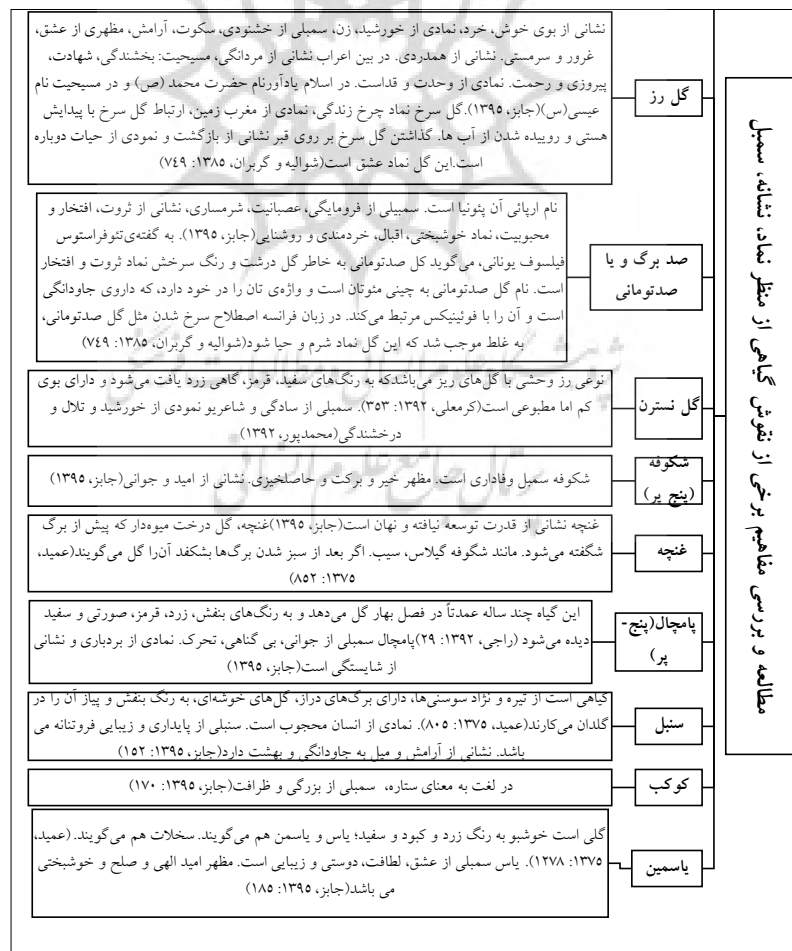 مطالعه و بررسی مفاهیم برخی از نقوش گیاهی از منظر نماد، نشانه، سمبل
گل رز
نشانی از بوی خوش، خرد، نمادی از خورشید، زن، سمبلی از خشنودی، سکوت، آرامش، مظهری از عشق،
غرور و سرمستی. نشانی از همدردی. در بین اعراب نشانی از مردانگی، مسیحیت: بخشندگی، شهادت،
پیروزی و رحمت. نمادی از وحدت و قداست. در اسلام یادآورنام حضرت محمد (ص) و در مسیحیت نام
عیسی(س)(جابز، ۱۳۹۵).گل سرخ نماد چرخ زندگی، نمادی از مغرب زمین، ارتباط گل سرخ با پیدایش
هستی و روییده شدن از آب ها. گذاشتن گل سرخ بر روی قبر نشانی از بازگشت و نمودی از حیات دوباره
است.این گل نماد عشق است(شوالیه و گربران، ۱۳۸۵: ۷٤۹)
صد برگ و یا
صدتومانی
نام ارپائی آن پئونیا است. سمبیلی از فرومایگی، عصبانیت، شرمساری، نشانی از ثروت، افتخار و
محبوبیت، نماد خوشبختی، اقبال، خردمندی و روشنایی(جابز، ۱۳۹۵). به گفته‌ی‌تئوفراستوس
فیلسوف یونانی، می گوید کل صدتومانی به خاطر گل درشت و رنگ سرخش نماد ثروت و افتخار
است. نام گل صدتومانی به چینی مئوتان است و واژه‌ی تان را در خود دارد، که داروی جاودانگی
است و آن را با فوئینیکس مرتبط می‌کند. در زبان فرانسه اصطلاح سرخ شدن مثل گل صدتومانی،
به غلط موجب شد که این گل نماد شرم و حیا شود(شوالیه و گربران، ۱۳۸۵: ۷٤۹)
گل نسترن
نوعی رز وحشی با گل‌های ریز می‌باشدکه به رنگ‌های سفید، قرمز، گاهی زرد یافت می‌شود و دارای بوی
کم اما مطبوعی است(کرمعلی، ۱۳۹۲: ۳۵۳). سمبلی از سادگی و شاعریو نمودی از خورشید و تلال و
درخشندگی(محمدپور، ۱۳۹۲)
شکوفه
(پنج پر)
شکوفه سمبل وفاداری است. مظهر خیر و برکت و حاصلخیزی. نشانی از امید و جوانی(جابز، ۱۳۹۵)
غنچه
غنچه نشانی از قدرت توسعه نیافته و نهان است(جابز، ۱۳۹۵)غنچه، گل درخت میوه‌دار که پیش از برگ
شگفته می‌شود. مانند شگوفه گیلاس، سیب. اگر بعد از سبز شدن برگ‌ها بشکفد آن‌را گل می‌گویند(عمید،
۱۳۷۵: ۸۵۲)
پامچال(پنج-
پر)
این گیاه چند ساله عمدتاً در فصل بهار گل می‌دهد و به رنگ‌های بنفش، زرد، قرمز، صورتی و سفید
دیده می‌شود (راجی، ۱۳۹۲: ۲۹)پامچال سمبلی از جوانی، بی گناهی، تحرک. نمادی از بردباری و نشانی
از شایستگی است(جابز، ۱۳۹۵)
سنبل
گیاهی است از تیره و نژاد سوسنی‌ها، دارای برگ‌های دراز، گل‌های خوشه‌ای، به رنگ بنفش و پیاز آن را در
گلدان می‌کارند(عمید، ۱۳۷۵: ۸۰۵). نمادی از انسان محجوب است. سنبلی از پایداری و زیبایی فروتنانه می
باشد. نشانی از آرامش و میل به جاودانگی و بهشت دارد(جابز، ۱۳۹۵: ۱۵۲)
کوکب
در لغت به معنای ستاره، سمبلی از بزرگی و ظرافت(جابز، ۱۳۹۵: ۱۷۰)
یاسمین
گلی است خوشبو به رنگ زرد و کبود و سفید؛ یاس و یاسمن هم می‌گویند. سخلات هم می‌گویند. (عمید،
۱۳۷۵: ۱۲۷۸). یاس سمبلی از عشق، لطافت، دوستی و زیبایی است. مظهر امید الهی و صلح و خوشبختی
می باشد(جابز، ۱۳۹۵: ۱۸۵)
پژوهشگاه علوم انسانی و مطالعات فرهنگی
پرتال جامع علوم انسانی